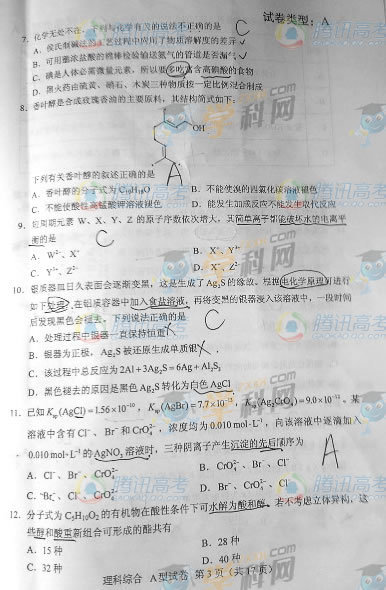 试卷类型：A
7. 化学无处不在，下列与化学有关的说法不正确的是 C
A. 侯氏制碱法的工艺过程中应用了物质溶解度的差异
B. 可用蘸浓盐酸的棉棒检验输送氨气的管道是否漏气
C. 碘是人体必需微量元素，所以要多吃富含高碘酸的食物
D. 黑火药由硫黄、硝石、木炭三种物质按一定比例混合制成
8. 香叶醇是合成玫瑰香油的主要原料，其结构简式如下：
OH
下列有关香叶醇的叙述正确的是 A
A. 香叶醇的分子式为C₁₀H₁₈O B. 不能使溴的四氯化碳溶液褪色
C. 不能使酸性高锰酸钾溶液褪色 D. 能发生加成反应不能发生取代反应
9. 短周期元素 W、X、Y、Z 的原子序数依次增大，其简单离子都能破坏水的电离平
衡的是 C
A. W²⁻、X⁺ B. X⁺、Y³⁺
C. Y³⁺、Z²⁻ D. X⁺、Z²⁻
10. 银质器皿日久表面会逐渐变黑，这是生成了Ag₂S的缘故，根据电化学原理可进行
如下处理：在铝质容器中加入食盐溶液，再将变黑的银器浸入该溶液中，一段时间
后发现黑色会褪去。下列说法正确的是 C
A. 处理过程中银器一直保持恒重
B. 银器为正极，Ag₂S 被还原生成单质银
C. 该过程中总反应为 2Al+3Ag₂S=6Ag+Al₂S₃
D. 黑色褪去的原因是黑色 Ag₂S 转化为白色 AgCl
11. 已知 Ksp(AgCl)=1.56×10⁻¹⁰，Ksp(AgBr)=7.7×10⁻¹³，Ksp(Ag₂CrO₄)=9.0×10⁻¹²。某
溶液中含有Cl⁻、Br⁻和CrO₄²⁻，浓度均为0.010mol·L⁻¹，向该溶液中逐滴加入
0.010mol·L⁻¹的AgNO₃溶液时，三种阴离子产生沉淀的先后顺序为 A
A. Cl⁻、Br⁻、CrO₄²⁻ B. CrO₄²⁻、Br⁻、Cl⁻
C. Br⁻、Cl⁻、CrO₄²⁻ D. Br⁻、CrO₄²⁻、Cl⁻
12. 分子式为C₅H₁₀O₂的有机物在酸性条件下可水解为酸和醇，若不考虑立体异构，这
些醇和酸重新组合可形成的酯共有
A. 15种 B. 28种
C. 32种 D. 40种
理科综合 A型试卷 第3页（共17页）